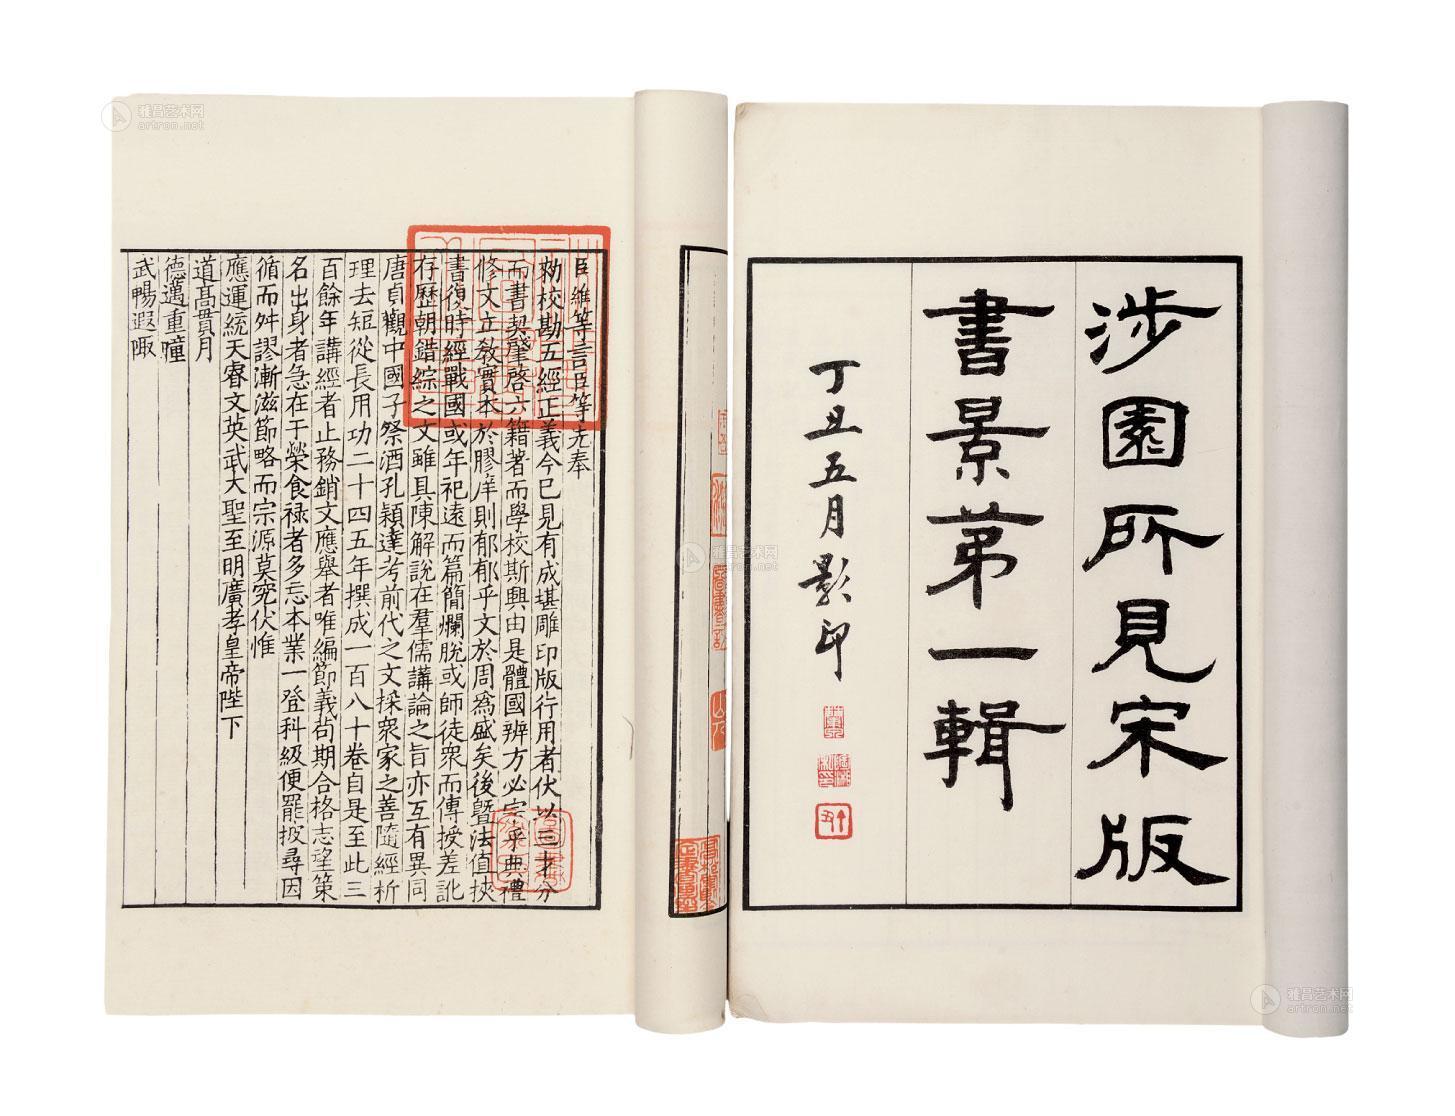 涉園所見宋版
書景第一輯
丁丑五月影印
臣維等言臣等先奉
勑校勘五經正義今已見有成堪雕印版行用者伏以三才分
而書契肇啓六籍著而學校斯興由是體國辨方必宗乎典禮
修文立敎實本於膠庠則郁郁乎文於周爲盛矣後暨法值挾
書復時經戰國或年祀遠而篇簡爛脫或師徒衆而傳授差訛
存歷朝錯綜之文雖具陳解說在羣儒講論之旨亦互有異同
唐貞觀中國子祭酒孔穎達考前代之文採衆家之善隨經析
理去短從長用功二十四五年撰成一百八十卷自是至此三
百餘年講經者止務銷文應舉者唯編節義苟期合格志望策
名出身者急在干榮食禄者多忘本業一登科級便罷披尋因
循而舛謬漸滋節略而宗源莫究伏惟
應運統天睿文英武大聖至明廣孝皇帝陛下
道髙貫月
德邁重瞳
武暢遐陬
雅昌艺术网
artron.net
雅昌艺术网
artron.net
雅昌艺术网
artron.net